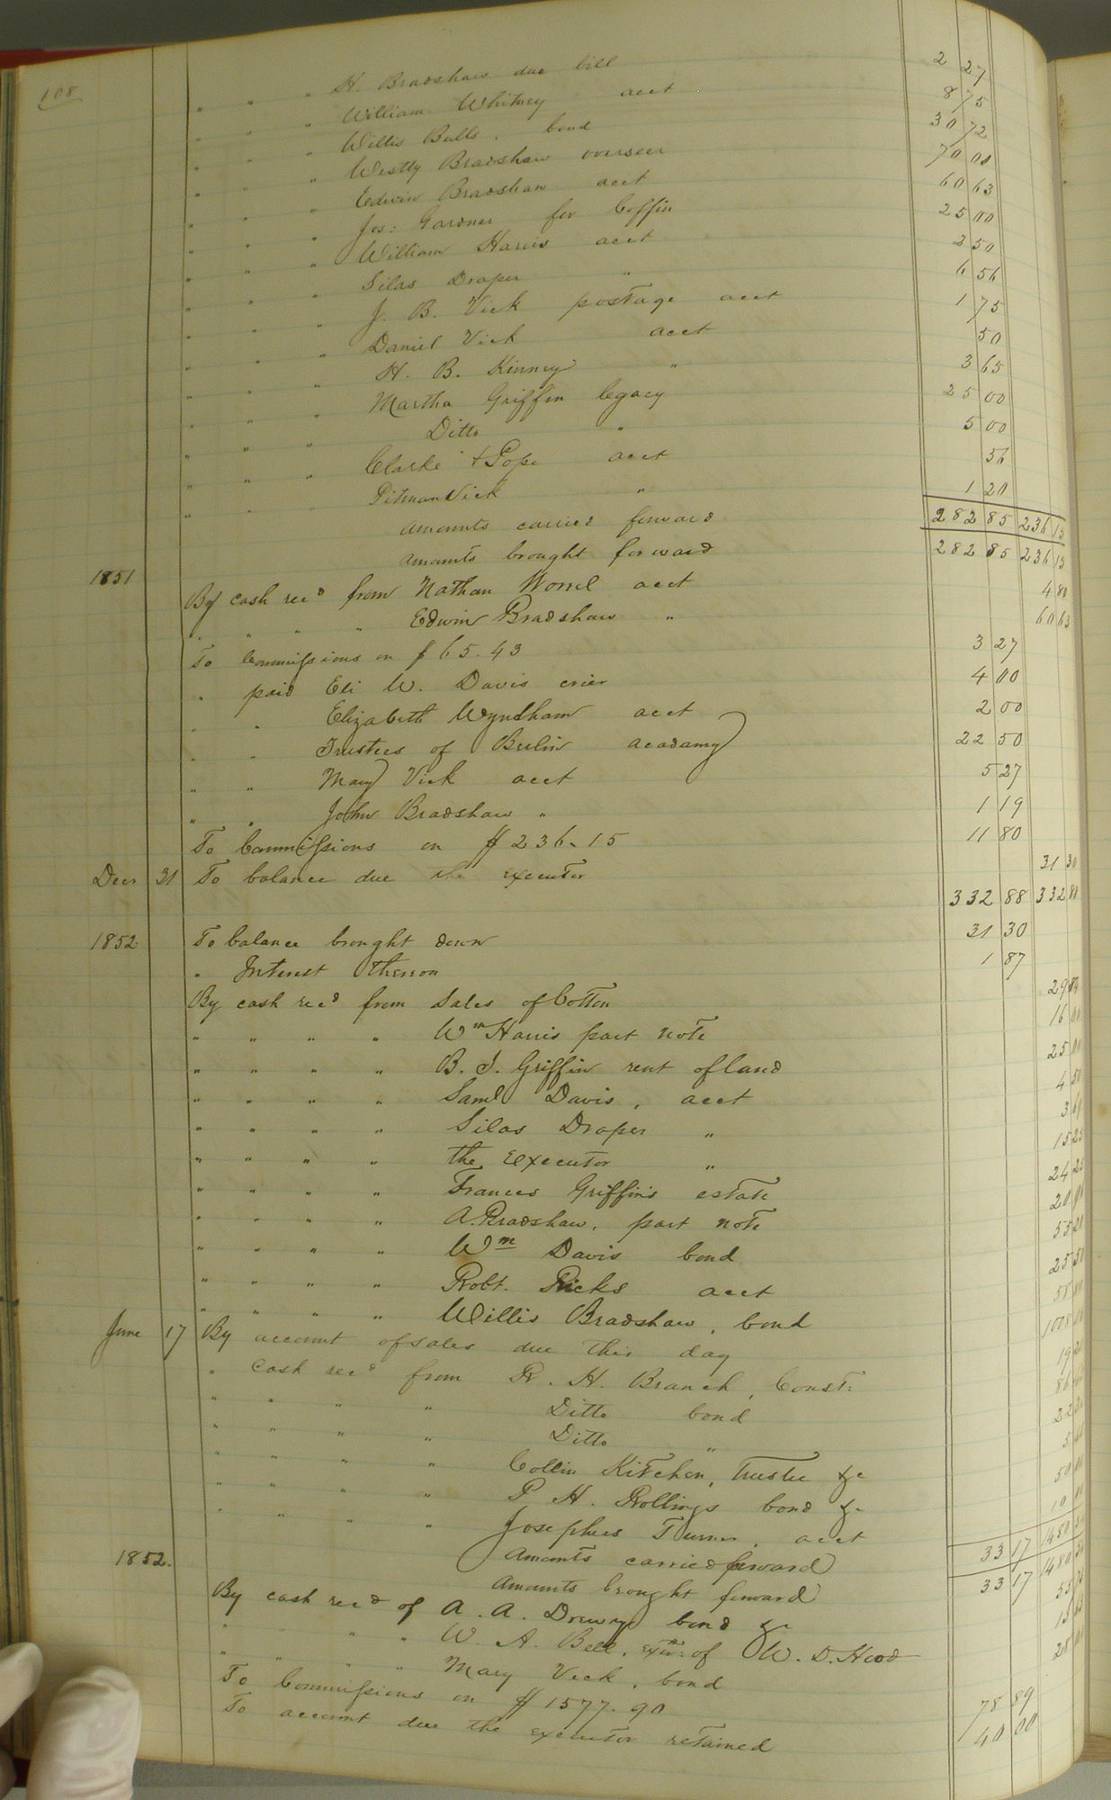 108
" " " H. Bradshaw due bill 2 27
" " " William Whitney acct 8 75
" " " Willis Bulls. bond 30 72
" " " Westly Bradshaw overseer 70 00
" " " Edwin Bradshaw acct 60 63
" " " Jos: Gardner for Coffin 25 00
" " " William Harris acct 2 50
" " " Silas Draper " 6 56
" " " J. B. Vick postage acct 1 75
" " " Daniel Vick acct 50
" " " H. B. Kinney " 3 65
" " " Martha Griffin legacy 25 00
" " " Ditto " 5 00
" " " Clarke & Pope acct 56
" " " Pitman Vick " 1 20
amounts carried forward 282 85 236 15
amounts brought forward 282 85 236 15
1851 By cash recd from Nathan Worrel acct 4 80
" " " " Edwin Bradshaw " 60 63
To Commissions on $65.43 3 27
" paid Eli W. Davis crier 4 00
" " Elizabeth Wyndham acct 2 00
" " Trustees of Berlin acadamy 22 50
" " Mary Vick acct 5 27
" " John Bradshaw " 1 19
To Commissions on $236.15 11 80
Decr 31 To balance due the executor 31 30
332 88 332 88
1852 To balance brought down 31 30
" Interest thereon 1 87
By cash recd from Sales of Cotton
" " " " Wm Harris part note 16 00
" " " " B. J. Griffin rent of land 25 00
" " " " Saml Davis, acct
" " " " Silas Draper "
" " " " the Executor " 15 25
" " " " Frances Griffin's estate 24 25
" " " " A. Bradshaw, part note
" " " " Wm Davis bond
" " " " Robt. Ricks acct
" " " " Willis Bradshaw, bond
June 17 By account of sales due this day
" Cash recd from R. H. Branch, Const:
" " " " Ditto bond
" " " " Ditto "
" " " " Collin Kitchen, trustee &c
" " " " P H. Rollings bond &c
" " " " Josephus Turner, acct
amounts carried forward 33 17 1480
1852. amounts brought forward 33 17 1480
By cash recd of A. A. Drewry bond &c
" " " " W. A. Bell, extr of W. D. Hood
" " " " Mary Vick, bond
To Commissions on $1577.90 78 89
To account due the executor retained 40 00